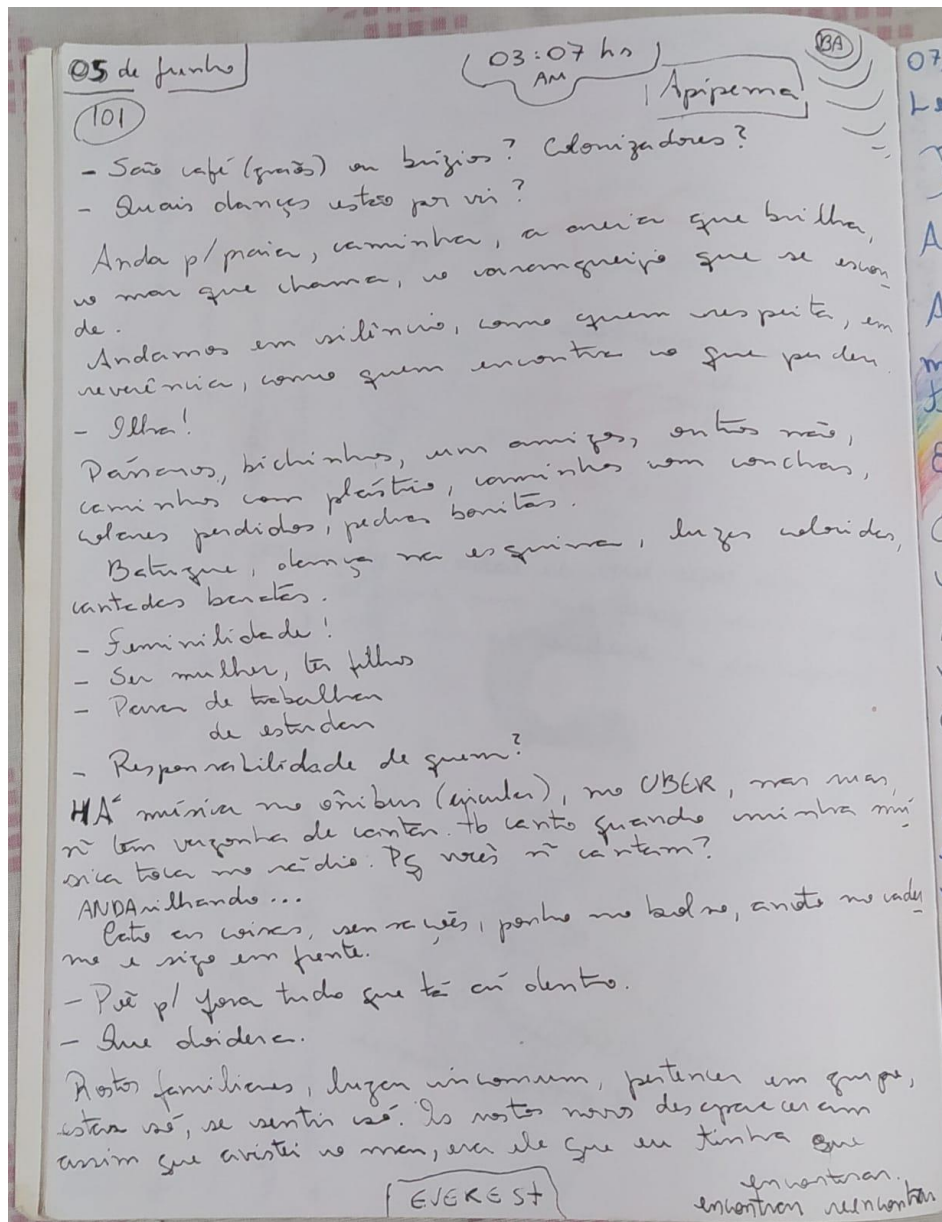 05 de Junho
03:07 hs
AM
BA
101
Apipema
- São café (grãos) ou búzios? Colonizadores?
- Quais danças estão por vir?
Anda p/ praia, caminha, a areia que brilha,
o mar que chama, o caranguejo que se escon
de.
Andamos em silêncio, como quem respeita, em
reverência, como quem encontra o que perdeu.
- Ilha!
Pássaros, bichinhos, um amigos, outros não,
caminhos com plástico, caminhos com conchas,
colares perdidos, pedras bonitas.
Batuque, dança na esquina, luzes coloridas,
cantadas baratas.
- Feminilidade!
- Ser mulher, ter filhos
- Parar de trabalhar
de estudar
- Responsabilidade de quem?
HÁ música no ônibus (circular), no UBER, nas ruas,
ñ têm vergonha de cantar. tb canto quando minha mú
sica toca no rádio. Pq vocês ñ cantam?
ANDArilhando...
Cato as coisas, sensações, ponho no bolso, anoto no cader
no e sigo em frente.
- Põe p/ fora tudo que tá aí dentro.
- Que doidera.
Rostos familiares, lugar incomum, pertencer em grupo,
estar só, se sentir só. Os rostos novos desapareceram
assim que avistei o mar, era ele que eu tinha que
encontrar.
encontrar reencontrar
EVEREST
07